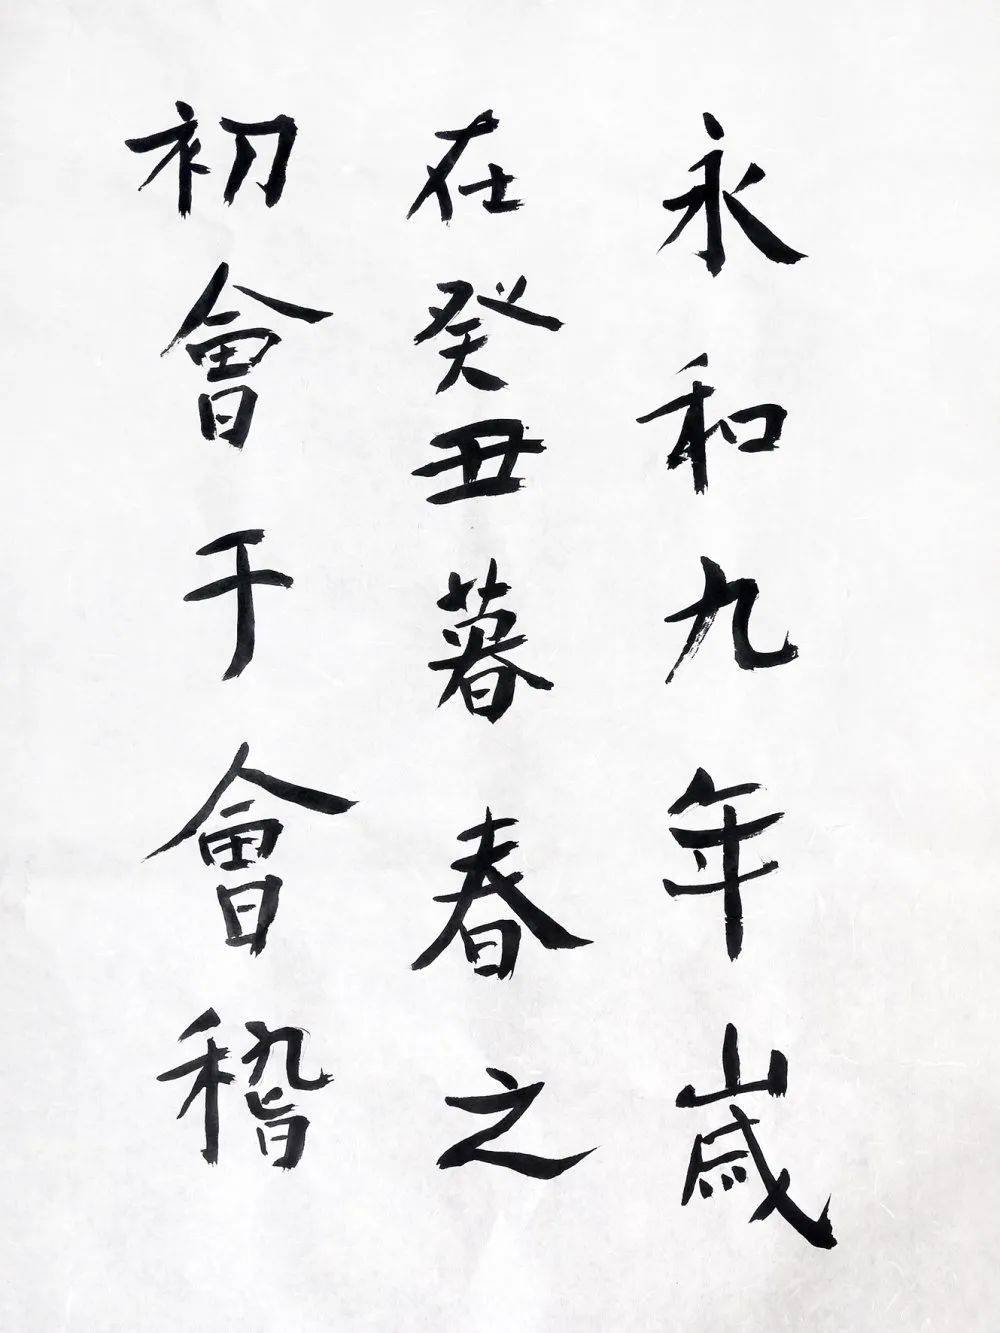 永和九年歲
在癸丑暮春之
初會于會稽